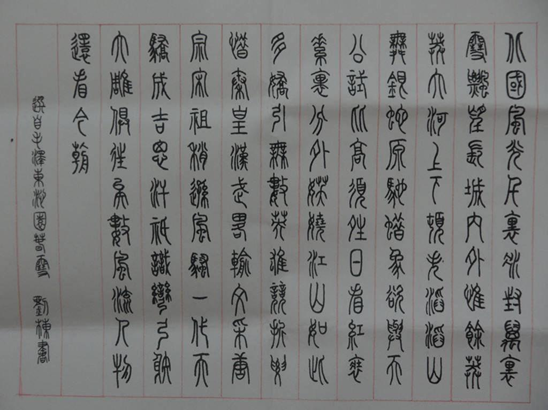 北國風光千裏冰封萬裏
雪飄望長城內外惟餘莽
莽大河上下頓失滔滔山
舞銀蛇原馳蠟象欲與天
公試比高須晴日看紅裝
素裹分外妖嬈江山如此
多嬌引無數英雄競折腰
惜秦皇漢武略輸文采唐
宗宋祖稍遜風騷一代天
驕成吉思汗祇識彎弓射
大雕俱往矣數風流人物
還看今朝
選自毛澤東沁園春雪 劉棟書